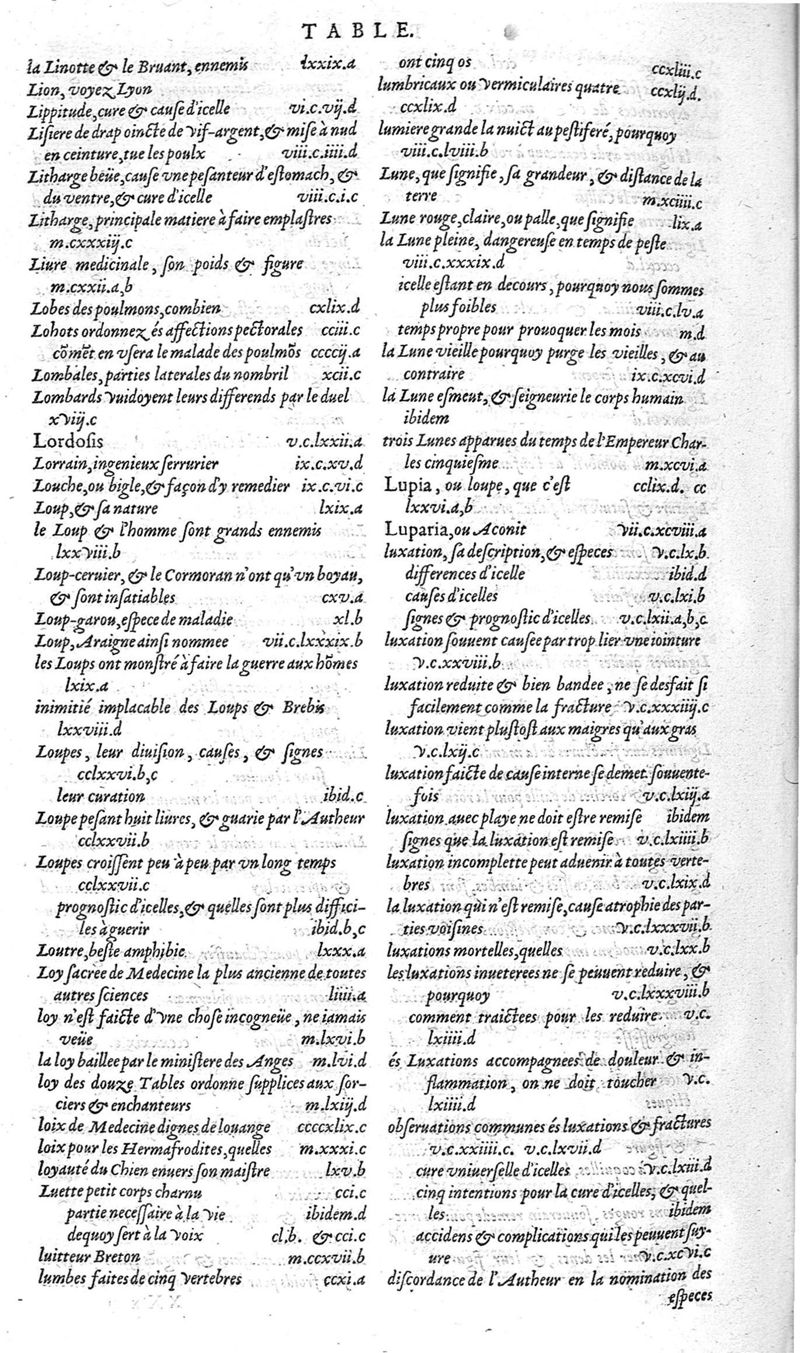 TABLE.
la Linotte & le Bruant, ennemis lxxix.a
Lion, voyez Lyon
Lippitude, cure & cause d'icelle vi.c.vij.d
Lisiere de drap oincte de vif-argent, & mise à nud
en ceinture, tue les poulx viii.c.iiii.d
Litharge beüe, cause vne pesanteur d'estomach, &
du ventre, & cure d'icelle viii.c.i.c
Litharge, principale matiere à faire emplastres
m.cxxxiij.c
Liure medicinale, son poids & figure
m.cxxii.a,b
Lobes des poulmons, combien cxlix.d
Lohots ordonnez és affections pectorales cciii.c
cõmẽt en vsera le malade des poulmõs ccccij.a
Lombales, parties laterales du nombril xcii.c
Lombards vuidoyent leurs differends par le duel
xviij.c
Lordosis v.c.lxxii.a
Lorrain, ingenieux serrurier ix.c.xv.d
Louche, ou bigle, & façon d'y remedier ix.c.vi.c
Loup, & sa nature lxix.a
le Loup & l'homme sont grands ennemis
lxxviii.b
Loup-ceruier, & le Cormoran n'ont qu'vn boyau,
& sont insatiables cxv.a
Loup-garou, espece de maladie xl.b
Loup, Araigne ainsi nommee vii.c.lxxxix.b
les Loups ont monstré à faire la guerre aux hõmes
lxix.a
inimitié implacable des Loups & Brebis
lxxviii.d
Loupes, leur diuision, causes, & signes
cclxxvi.b,c
leur curation ibid.c
Loupe pesant huit liures, & guarie par l'Autheur
cclxxvii.b
Loupes croissent peu à peu par vn long temps
cclxxvii.c
prognostic d'icelles, & quelles sont plus diffici-
les à guerir ibid.b,c
Loutre, beste amphibie lxxx.a
Loy sacrée de Medecine la plus ancienne de toutes
autres sciences liiii.a
loy n'est faicte d'vne chose incogneüe, ne iamais
veüe m.lxvi.b
la loy baillee par le ministere des Anges m.lvi.d
loy des douze Tables ordonne supplices aux sor-
ciers & enchanteurs m.lxij.d
loix de Medecine dignes de louange ccccxlix.c
loix pour les Hermafrodites, quelles m.xxxi.c
loyauté du Chien enuers son maistre lxv.b
Luette petit corps charnu cci.c
partie necessaire à la vie ibidem.d
dequoy sert à la voix cl,b. & cci.c
luitteur Breton m.ccxvii.b
lumbes faites de cinq vertebres ccxi.a
ont cinq os ccxliii.c
lumbricaux ou vermiculaires quatre ccxlij.d.
ccxlix.d
lumiere grande la nuict au pestiferé, pourquoy
viii.c.lviii.b
Lune, que signifie, sa grandeur, & distance de la
terre m.xciiii.c
Lune rouge, claire, ou palle, que signifie lix.a
la Lune pleine, dangereuse en temps de peste
viii.c.xxxix.d
icelle estant en decours, pourquoy nous sommes
plus foibles viii.c.lv.a
temps propre pour prouoquer les mois m.d
la Lune vieille pourquoy purge les vieilles, & au
contraire ix.c.xcvi.d
la Lune esmeut, & seigneurie le corps humain
ibidem
trois Lunes apparues du temps de l'Empereur Char-
les cinquiesme m.xcvi.a
Lupia, ou loupe, que c'est cclix.d. cc
lxxvi.a,b
Luparia, ou Aconit vii.c.xcviii.a
luxation, sa description, & especes v.c.lx.b.
differences d'icelle ibid.d
causes d'icelles v.c.lxi.b
signes & prognostic d'icelles v.c.lxii.a,b,c
luxation souuent causée par trop lier vne iointure
v.c.xxviii.b
luxation reduite & bien bandee, ne se desfait si
facilement comme la fracture v.c.xxxiiij.c
luxation vient plustost aux maigres qu'aux gras
v.c.lxij.c
luxation faicte de cause interne se demet souuente-
fois v.c.lxiij.a
luxation auec playe ne doit estre remise ibidem
signes que la luxation est remise v.c.lxiiii.b
luxation incomplette peut aduenir à toutes verte-
bres v.c.lxix.d
la luxation qui n'est remise, cause atrophie des par-
ties voisines v.c.lxxxvii.b
luxations mortelles, quelles v.c.lxx.b
les luxations inueterees ne se peuuent reduire, &
pourquoy v.c.lxxxviii.b
comment traictees pour les reduire v.c.
lxiiii.d
és Luxations accompagnees de douleur & in-
flammation, on ne doit toucher v.c.
lxiiii.d
obseruations communes és luxations & fractures
v.c.xxiiii.c. v.c.lxvii.d
cure vniuerselle d'icelles v.c.lxiii.d
cinq intentions pour la cure d'icelles, & quel-
les ibidem
accidens & complications qui les peuuent suy-
ure v.c.xcvi.c
discordance de l'Autheur en la nomination des
especes